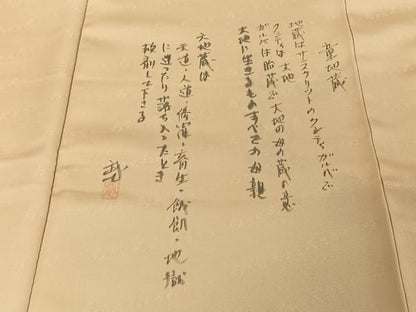 童地蔵
地蔵はサンスクリットのクシティガルバで
クシティは大地
ガルバは胎蔵で大地の母の蔵の意
大地に生きるものすべての母親
六地蔵は
天道・人道・修羅・畜生・餓鬼・地獄
に迷ったり落ち入ったとき
救済して下さる